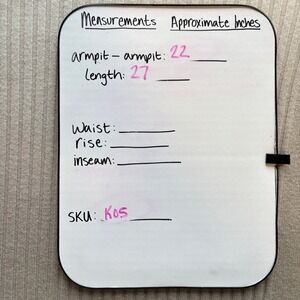 Measurements Approximate Inches
armpit - armpit: 22
length: 27
Waist:
rise:
inseam:
SKU: K05